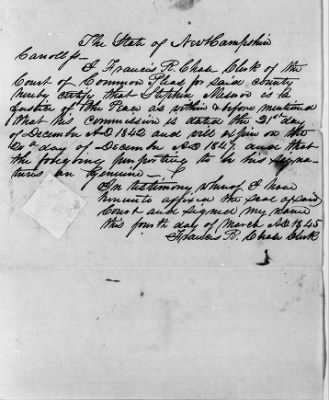 The State of New Hampshire
Carroll ss
I Francis R. Chase Clerk of the
Court of Common Pleas for said county
hereby certify that Stephen Meserve is a
Justice of the Peace as within & before mentioned
that his commission is dated the 21st day
of December AD 1842 and will expire on the
20th day of December AD 1847, and that
the foregoing purporting to be his signa-
tures are genuine
In testimony whereof I have
hereunto affixed the seal of said
Court and signed my name
this fourth day of March AD 1845
Francis R. Chase Clerk